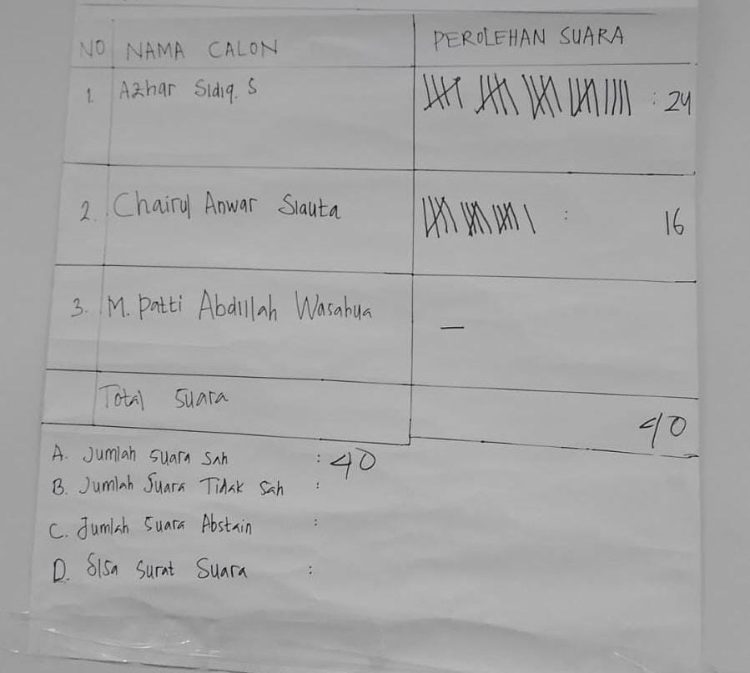 NO NAMA CALON PEROLEHAN SUARA
1. Azhar Sidiq. S : 24
2. Chairul Anwar Siauta : 16
3. M. Patti Abdillah Wasahua —
Total Suara 40
A. Jumlah Suara Sah : 40
B. Jumlah Suara Tidak Sah :
C. Jumlah Suara Abstain :
D. Sisa Surat Suara :